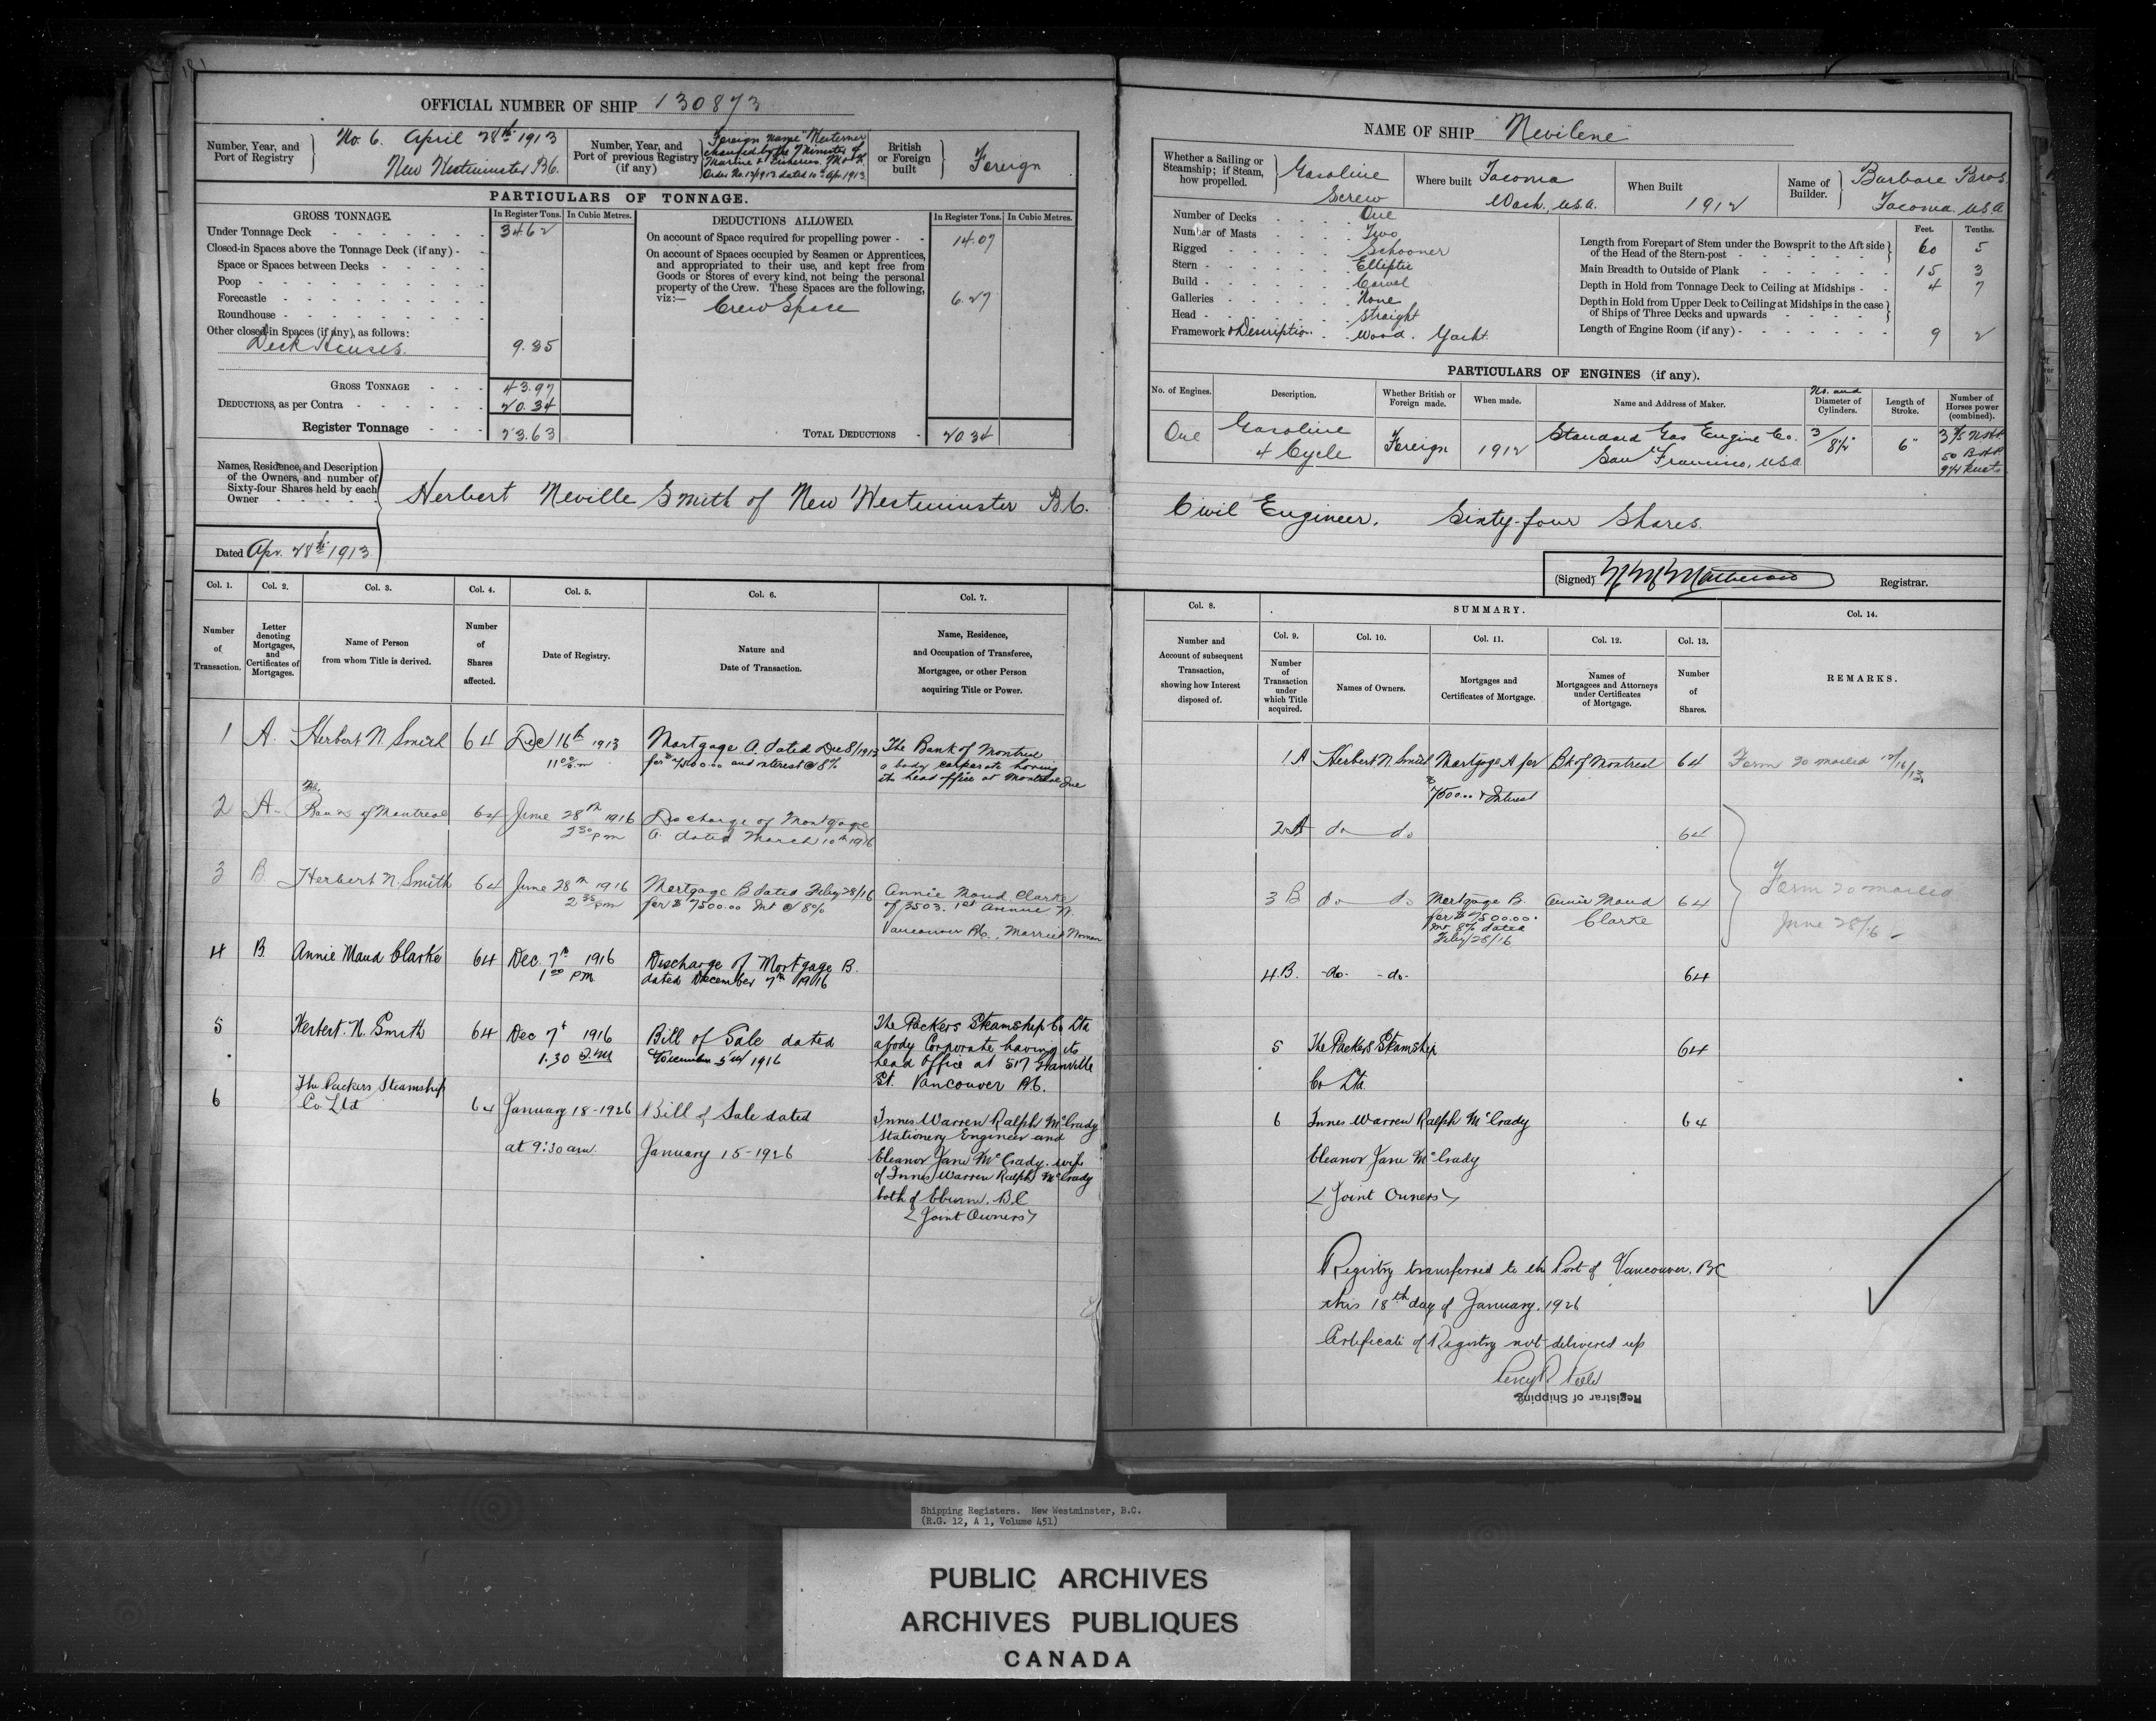 OFFICIAL NUMBER OF SHIP 130873
Number, Year, and Port of Registry
No. 6. April 28th 1913
New Westminster B.C.
Number, Year, and Port of previous Registry (if any)
Foreign name "Westerner"
changed by the Minister of
Marine & Fisheries.
Order No. 12/1913 dated 10th Apr. 1913
British or Foreign built
Foreign
PARTICULARS OF TONNAGE.
GROSS TONNAGE.
In Register Tons. In Cubic Metres.
DEDUCTIONS ALLOWED.
In Register Tons. In Cubic Metres.
Under Tonnage Deck 34.62
Closed-in Spaces above the Tonnage Deck (if any)
Space or Spaces between Decks
Poop
Forecastle
Roundhouse
Other closed-in Spaces (if any), as follows:
Deck Houses. 9.35
GROSS TONNAGE 43.97
DEDUCTIONS, as per Contra 20.34
Register Tonnage 23.63
On account of Space required for propelling power 14.07
On account of Spaces occupied by Seamen or Apprentices,
and appropriated to their use, and kept free from
Goods or Stores of every kind, not being the personal
property of the Crew. These Spaces are the following,
viz:—
Crew Space 6.27
TOTAL DEDUCTIONS 20.34
Names, Residence, and Description
of the Owners, and number of
Sixty-four Shares held by each
Owner
Herbert Neville Smith of New Westminster B.C.
Dated Apr. 28th 1913
Col. 1. Col. 2. Col. 3. Col. 4. Col. 5. Col. 6. Col. 7.
Number of Transaction.
Letter denoting Mortgages, and Certificates of Mortgages.
Name of Person from whom Title is derived.
Number of Shares affected.
Date of Registry.
Nature and Date of Transaction.
Name, Residence, and Occupation of Transferee, Mortgagee, or other Person acquiring Title or Power.
1 A. Herbert N. Smith 64 Dec 16th 1913 Mortgage A. dated Dec 8/1913 The Bank of Montreal
11.00 a.m for $7500.00 and interest @ 8% a body corporate having
its head office at Montreal Que
2 A. The Bank of Montreal 64 June 28th 1916 Discharge of Mortgage
2.30 pm A. dated March 10th 1916
3 B. Herbert N. Smith 64 June 28th 1916 Mortgage B dated Feby 28/16 Annie Maud Clarke
2.35 pm for $7500.00 Int @ 8% of 3503. 1st Avenue W.
Vancouver B.C., Married Woman
4 B. Annie Maud Clarke 64 Dec. 7th 1916 Discharge of Mortgage B.
1.00 PM dated December 7th 1916
5 Herbert. N. Smith 64 Dec 7th 1916 Bill of Sale dated The Packers Steamship Co Ltd
1.30 P.M December 1916 a body Corporate having its
head office at 517 Granville
St. Vancouver B.C.
6 The Packers Steamship
Co Ltd 64 January 18-1926 Bill of Sale dated Innes Warren Ralph McCrady
at 9:30 am. January 15-1926 Stationery Engineer and
Eleanor Jane McCrady. wife
of Innes Warren Ralph McCrady
both of Eburne. B.C
(Joint Owners)
NAME OF SHIP "Nevilene"
Whether a Sailing or Steamship; if Steam, how propelled.
Gasoline
Screw
Where built Tacoma
Wash., U.S.A.
When Built 1912
Name of Builder. Barbare Bros.
Tacoma. U.S.A
Number of Decks One
Number of Masts Two
Rigged Schooner
Stern Elliptic
Build Carvel
Galleries None
Head Straight
Framework & Description Wood. Yacht.
Feet. Tenths.
Length from Forepart of Stem under the Bowsprit to the Aft side
of the Head of the Stern-post 60 5
Main Breadth to Outside of Plank 15 3
Depth in Hold from Tonnage Deck to Ceiling at Midships 4 7
Depth in Hold from Upper Deck to Ceiling at Midships in the case
of Ships of Three Decks and upwards
Length of Engine Room (if any) 9 2
PARTICULARS OF ENGINES (if any).
No. of Engines.
Description.
Whether British or Foreign made.
When made.
Name and Address of Maker.
No. and Diameter of Cylinders.
Length of Stroke.
Number of Horses power (combined).
One Gasoline
4 Cycle Foreign 1912 Standard Gas Engine Co.
San Francisco, USA 3/8½" 6" N.H.P.
50 B.H.P.
9¼ Knots
Civil Engineer. Sixty-four Shares.
(Signed) Registrar.
Col. 8.
Number and Account of subsequent Transaction, showing how Interest disposed of.
SUMMARY.
Col. 9. Col. 10. Col. 11. Col. 12. Col. 13. Col. 14.
Number of Transaction under which Title acquired.
Names of Owners.
Mortgages and Certificates of Mortgage.
Names of Mortgagees and Attorneys under Certificates of Mortgage.
Number of Shares.
REMARKS.
1 A Herbert N. Smith Mortgage A for Bk of Montreal 64 Form 20 mailed 12/16/13.
$7500.00 & Interest
2 A do do 64
3 B do do Mortgage B. Annie Maud 64 Form 20 mailed
for $7500.00 Clarke June 28/16
Int 8% dated
Feby/28/16
4 B. -do- -do- 64
5 The Packers Steamship 64
Co Ltd
6 Innes Warren Ralph McCrady 64
Eleanor Jane McCrady
(Joint Owners)
Registry transferred to the Port of Vancouver. B.C
this 18th day of January. 1926
Certificate of Registry not delivered up
Registrar of Shipping
Shipping Registers. New Westminster, B.C.
(R.G. 12, A 1, Volume 451)
PUBLIC ARCHIVES
ARCHIVES PUBLIQUES
CANADA